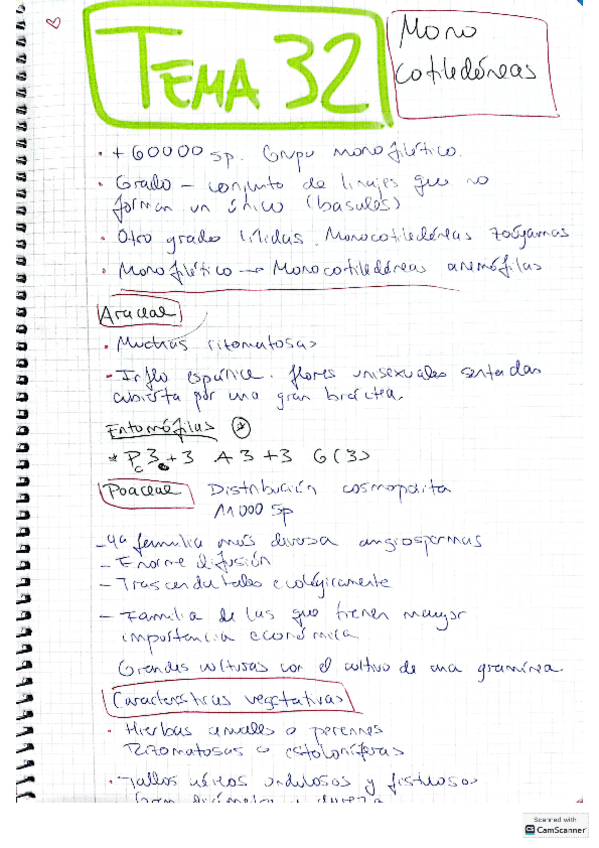 TEMA 32
Mono
cotiledóneas
• + 60000 sp. Grupo monofilético.
• Grado – conjunto de linajes que no
forman un único (basales)
• Otro grado lílidas. Monocotiledóneas zoógamas
• Monofilético → Monocotiledóneas anemófilas
Araceae
• Muchas rizomatosas
- Inflo espádice. flores unisexuales sentadas
abierta por una gran bráctea.
Entomófilas *
* P 3+3 A 3+3 G(3)
c
Poaceae Distribución cosmopolita
11000 sp
- 4ª familia más diversa angiospermas
- Enorme difusión
- Trascendentales ecológicamente
- Familia de las que tienen mayor
importancia económica
Grandes culturas con el cultivo de una gramínea.
Características vegetativas
• Hierbas anuales o perennes
Rizomatosas o estoloníferas
• Tallos aéreos y fistulosos
Scanned with
CamScanner